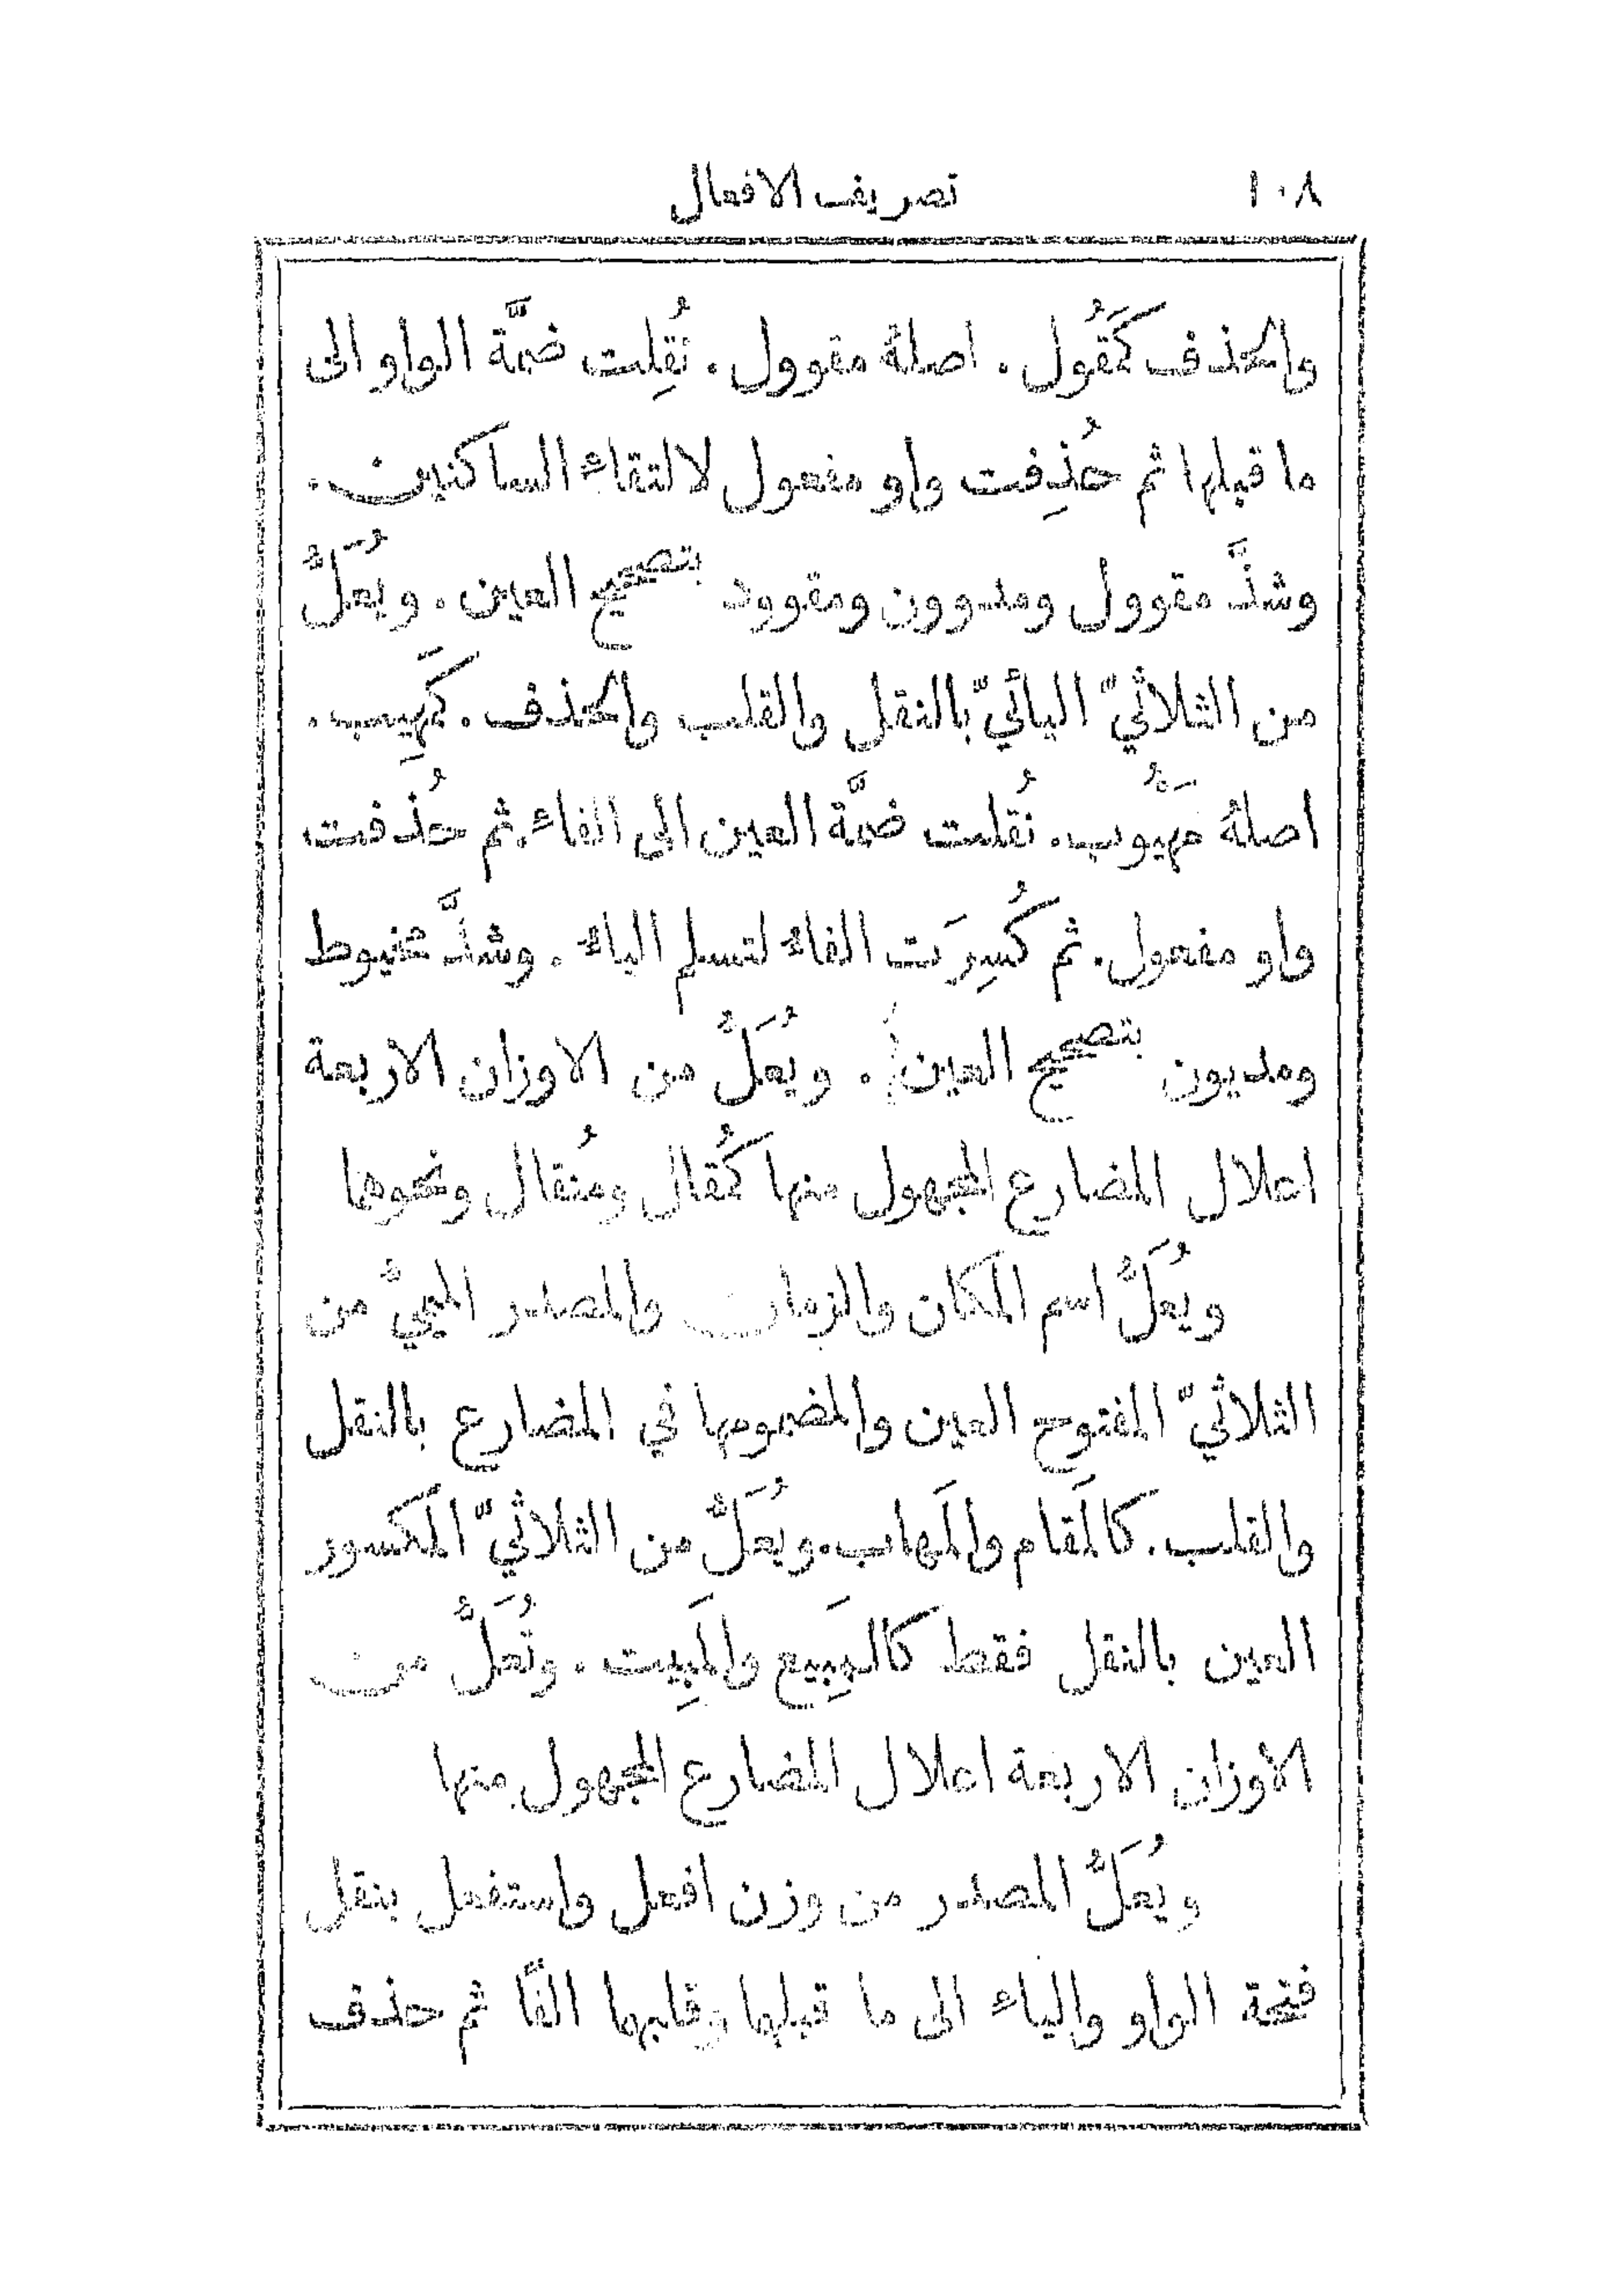 ١٠٨ تصريف الافعال
والحذف كَمَقُول . اصلهُ مقوول . نُقِلت ضمَّة الواو الى
ما قبلها ثم حُذِفت واو مفعول لالتقاءِ الساكنين .
وشذَّ مقوول ومصوون ومقوود بتصحيح العين . ويُعَلُّ
من الثلاثيّ اليائيّ بالنقل والقلب والحذف . كَمَهِيب .
اصلهُ مَهْيُوب . نُقلت ضمَّة العين الى الفاءِ ثم حُذفت
واو مفعول . ثم كُسِرَت الفاءُ لتسلم الياءُ . وشذَّ مخيوط
ومديون بتصحيح العين . ويُعَلُّ من الاوزان الاربعة
اعلال المضارع المجهول منها كمُقال ومُنقال ونحوها
ويُعَلُّ اسم المكان والزمان والمصدر الميميُّ من
الثلاثيّ المفتوح العين والمضمومها في المضارع بالنقل
والقلب . كالمَقام والمَهاب . ويُعَلُّ من الثلاثيّ المكسور
العين بالنقل فقط كالمَبِيع والمَبِيت . وتُعَلُّ من
الاوزان الاربعة اعلال المضارع المجهول منها
ويُعَلُّ المصدر من وزن افعل واستفعل بنقل
فتحة الواو والياءِ الى ما قبلها وقلبها الفًا ثم حذف